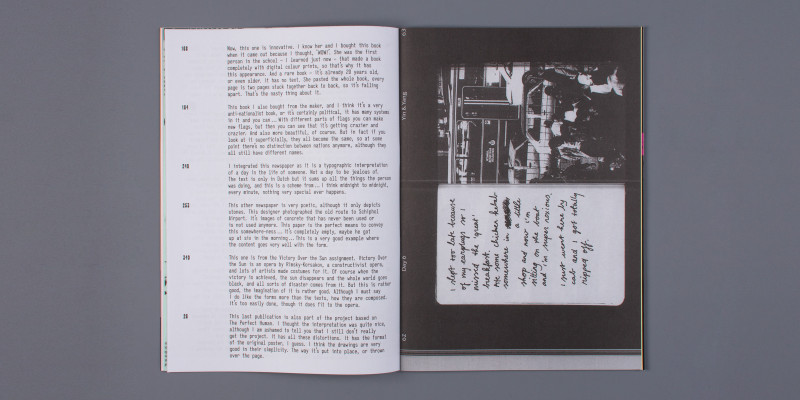 168
Now, this one is innovative. I know her and I bought this book
when it came out because I thought, 'WOW!'. She was the first
person in the school – I learned just now – that made a book
completely with digital colour prints, so that's why it has
this appearance. And a rare book – it's already 20 years old,
or even older. It has no text. She pasted the whole book, every
page is two pages stuck together back to back, so it's falling
apart. That's the nasty thing about it.
This book I also bought from the maker, and I think it's a very
anti-nationalist book, or it's certainly political, it has many systems
in it and you can... With different parts of flags you can make
new flags, but then you can see that it's getting crazier and
crazier. And also more beautiful, of course. But in fact if you
look at it superficially, they all become the same, so at some
point there's no distinction between nations anymore, although they
all still have different names.
I integrated this newspaper as it is a typographic interpretation
of a day in the life of someone. Not a day to be jealous of.
The text is only in Dutch but it sums up all the things the person
was doing, and this is a scheme from... I think midnight to midnight,
every minute, nothing very special ever happens.
This other newspaper is very poetic, although it only depicts
stones. This designer photographed the old route to Schiphol
Airport. It's images of concrete that has never been used or
is not used anymore. This paper is the perfect means to convey
this somewhere-ness... It's completely empty, maybe he got
up at six in the morning... This is a very good example where
the content goes very well with the form.
This one is from the Victory Over the Sun assignment. Victory Over
the Sun is an opera by Rimsky-Korsakov, a constructivist opera,
and lots of artists made costumes for it. Of course when the
victory is achieved, the sun disappears and the whole world goes
black, and all sorts of disaster comes from it. But this is rather
good, the imagination of it is rather good. Although I must say
I do like the forms more than the texts, how they are composed.
It's too easily done, though it does fit to the opera.
This last publication is also part of the project based on
The Perfect Human. I thought the interpretation was quite nice,
although I am ashamed to tell you that I still don't really
get the project. It has all these distortions. It has the format
of the original poster, I guess. I think the drawings are very
good in their simplicity. The way it's put into place, or thrown
over the page.
63
Yin & Yang
Day 6
62
I slept too late because
of my earplugs so I
missed the 'great'
breakfast.
Ate some chicken kebab
somewhere in a little
shop and now i'm
sitting on the boat
and i'm super noxious,
I just went here by
cab and I got totally
ripped off.